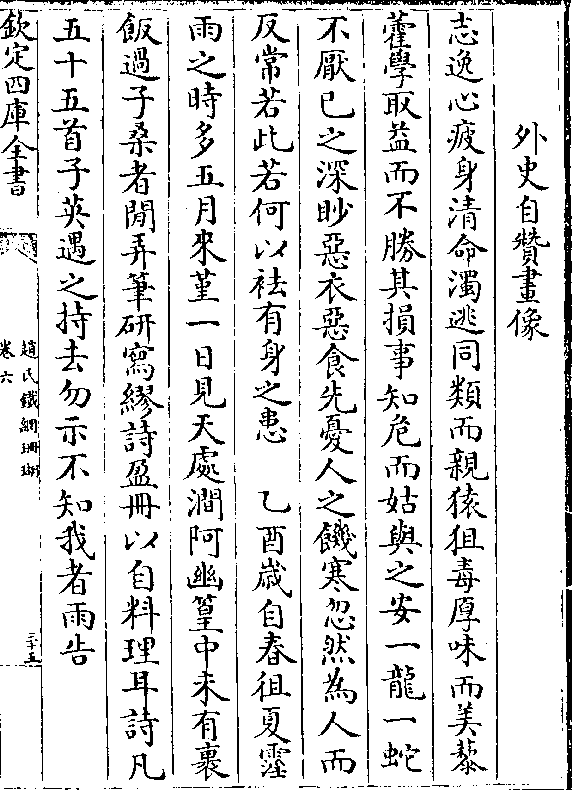 外史自贊畫像
志逸心疲身清命濁逃同類而親猿狙毒厚味而美藜
藿學取益而不勝其損事知危而姑與之安一龍一蛇
不厭已之深眇惡衣惡食先憂人之饑寒忽然為人而
反常若此若何以袪有身之患　乙酉歲自春徂夏霪
雨之時多五月來堇一日見天處澗阿幽篁中未有裹
飯過子桑者閒弄筆硏寫繆詩盈冊以自料理耳詩凡
五十五首子英遇之持去勿示不知我者雨告
欽定四庫全書
趙氏鐵網珊瑚
卷六
三十五